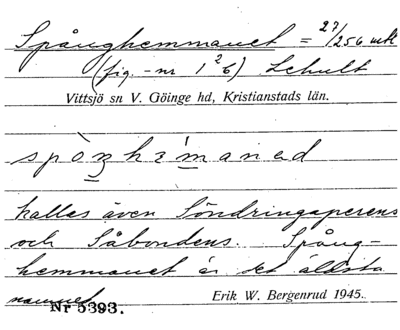 Spånghemmanet = 27/256 mtl
(fig.-nr 1²6) Lchult
Vittsjö sn V. Göinge hd, Kristianstads län.
spòŋhémaned
kallas även Söndringaperens
och Såbondens. Spång-
hemmanet är det äldsta
namnet.
Erik W. Bergenrud 1945.
Nr 5393.